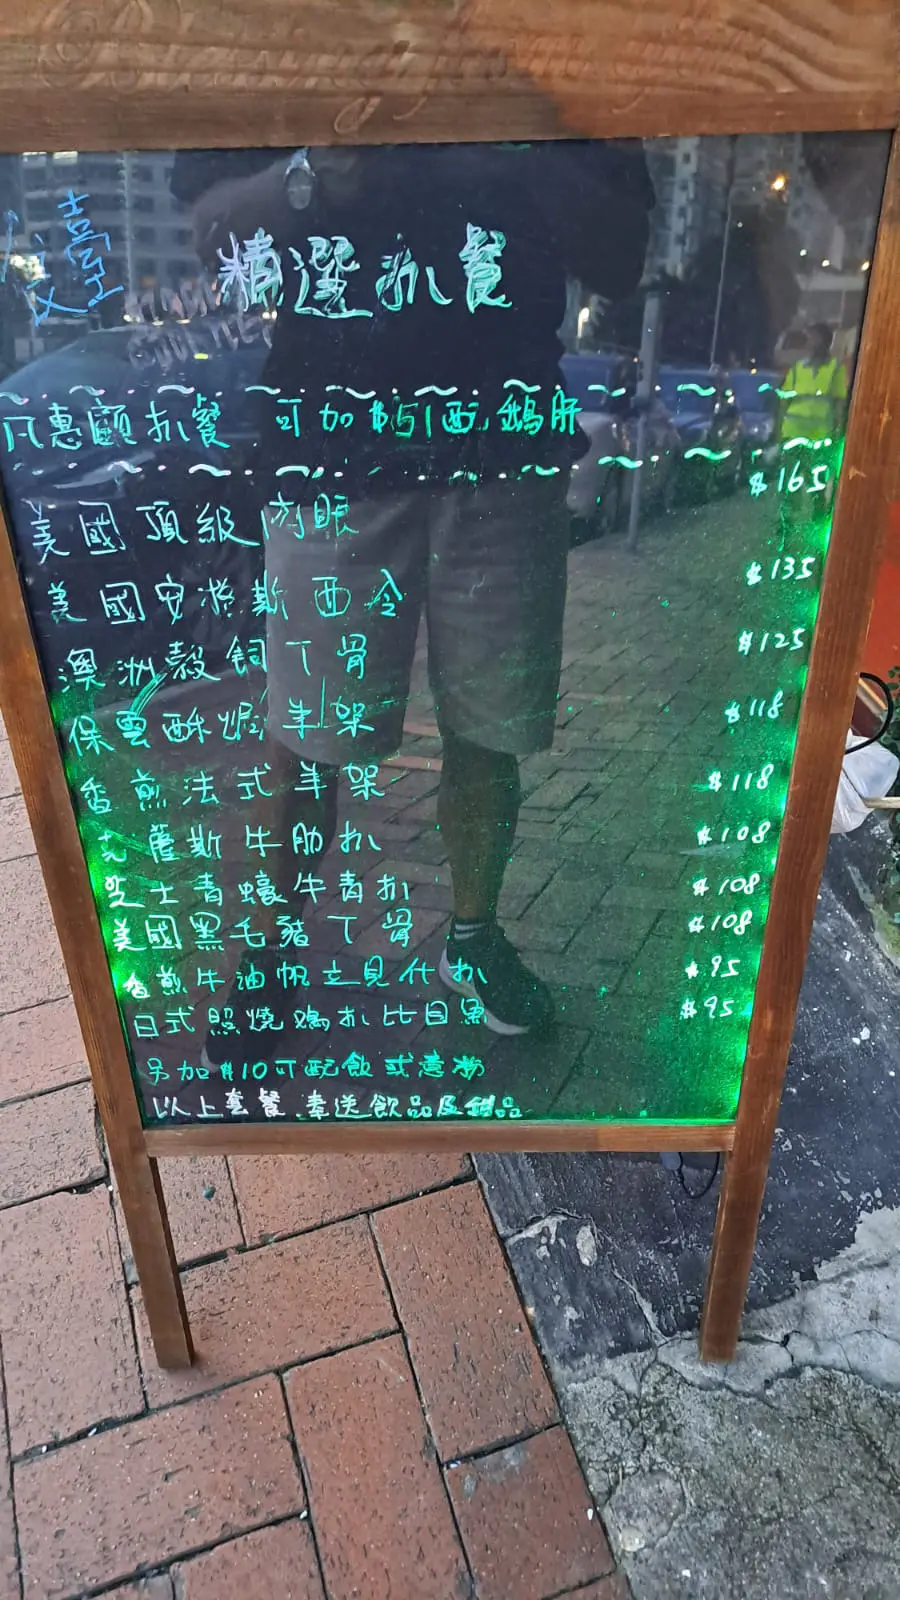 Blessing from
精選扒餐
凡惠顧扒餐 可加$51西 鵝肝
美國頂級肉眼 $165
美國安格斯西冷 $135
澳洲穀飼丁骨 $125
保雲酥焗羊架 $118
香煎法式羊架 $118
薩斯牛肋扒 $108
芝士青蠔牛青扒 $108
美國黑毛豬丁骨 $108
香煎牛油帆立貝伴扒 $95
日式照燒鴉扒比目魚 $95
另加$10可配飲或意粉
以上套餐 奉送飲品及甜品